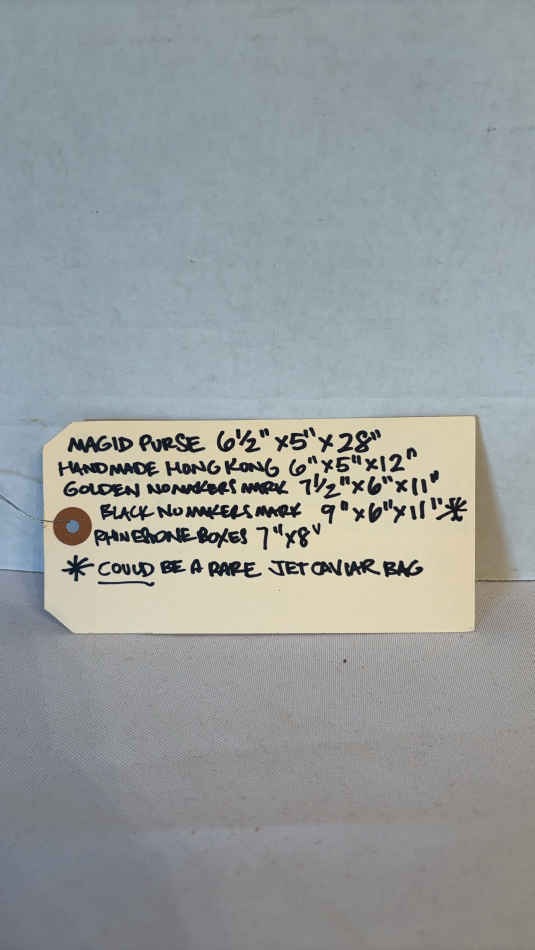 MAGID PURSE 6½" x 5" x 28"
HANDMADE HONG KONG 6" x 5" x 12"
GOLDEN NO MAKERS MARK 7½" x 6" x 11"
BLACK NO MAKERS MARK 9" x 6" x 11" *
RHINESTONE BOXES 7" x 8"
* COULD BE A RARE JET CAVIAR BAG